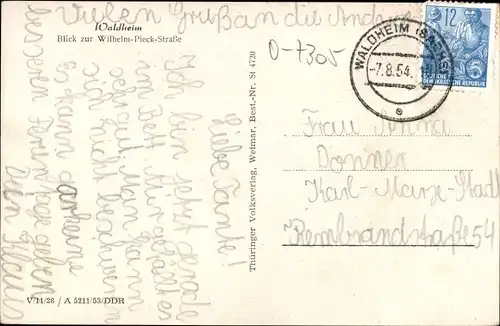 Vielen Gruß an die Andern
Waldheim
Blick zur Wilhelm-Pieck-Straße
0-7305
WALDHEIM (SACHS)
-7.8.54.
12
DEUTSCHE
DEMOKRATISCHE REPUBLIK
Liebe Tante!
Ich bin jetzt gerade
im Bett. Mir gefällt es
sehr gut. Man kann
sich nicht beschweren
Es kann daheime
besseren Ferientage geben
Dein Klaus
Thüringer Volksverlag, Weimar, Best.-Nr. St 4720
Frau Anna
Donner
Karl-Marx-Stadt
Rembrandstraße 54
V/11/28 / A 5211/53/DDR